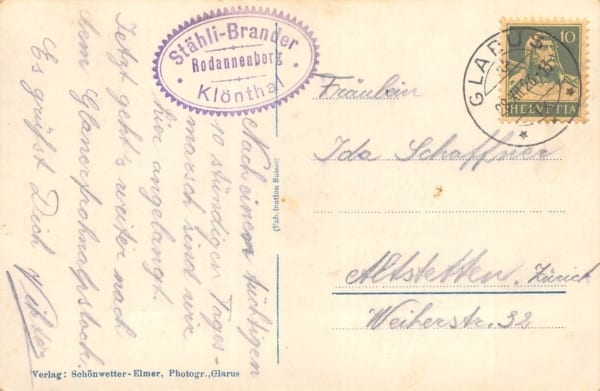 Stähli-Brander
Rodannenberg
Klönthal
10
HELVETIA
GLARUS
Nach einem tüchtigen
10 stündigen Tages-
marsch sind wir
hier angelangt.
Jetzt geht's weiter nach
dem Glanerfrohnalpstock.
Es grüsst Dich
Viktor
(Fabrication Suisse)
Fräulein
Ida Schaffner
Altstetten, Zürich
Weiherstr. 32
Verlag: Schönwetter-Elmer, Photogr.,Glarus